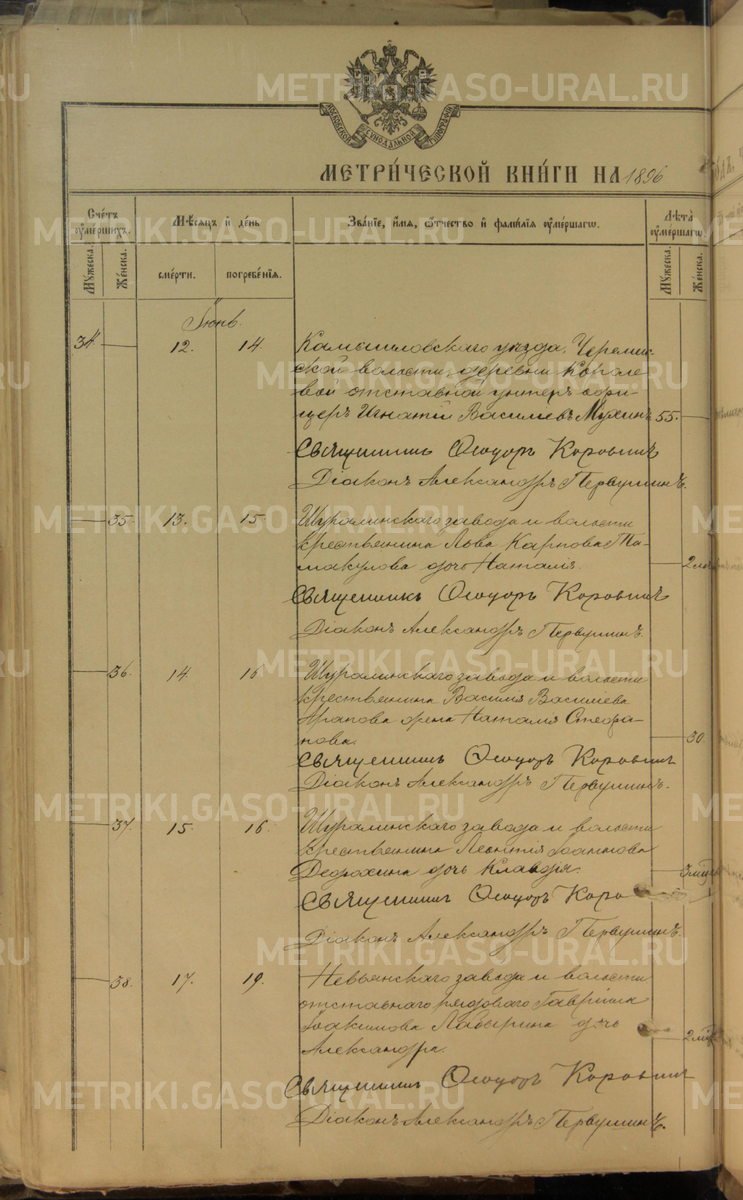 МЕТРИ́ЧЕСКОЙ КНИ́ГИ НА 1896
Сче́тъ ᲂу҆ме́ршихъ.
Мѣ́сяцъ и҆ де́нь
Зва́нїе, и҆́мя, ѻ҆́тчество и҆ фами́лїя ᲂу҆ме́ршагѡ.
Лѣ́та ᲂу҆ме́ршагѡ
Мꙋ́жеска.
Же́нска.
сме́рти.
погребе́нїя.
Мꙋ́жеска.
Же́нска.
Іюнь.
34 12. 14. Камышловскаго уѣзда, Черемис-
ской волости, деревни
отставной унтеръ офи-
церъ Игнатій Василіевъ Мухинъ 55.
Священникъ Ѳеодоръ Коровинъ
Діаконъ Александръ Первушинъ.
35. 13. 15. Шуралинскаго завода и волости
крестьянина Льва Карпова
дочь Наталія. 2
Священникъ Ѳеодоръ Коровинъ
Діаконъ Александръ Первушинъ.
36. 14 16 Шуралинскаго завода и волости
крестьянина Василія Василіева
Арапова жена Наталія Стефа-
нова. 50
Священникъ Ѳеодоръ Коровинъ
Діаконъ Александръ Первушинъ.
37. 15. 16. Шуралинскаго завода и волости
крестьянина Леонтія Іоаннова
дочь Клавдія. 3
Священникъ Ѳеодоръ Коро
Діаконъ Александръ Первушинъ.
38. 17. 19. Невьянскаго завода и волости
отставнаго рядоваго Гавріила
Іоакимова дочь
Александра. 2
Священникъ Ѳеодоръ Коровинъ
Діаконъ Александръ Первушинъ.
METRIKI.GASO-URAL.RU